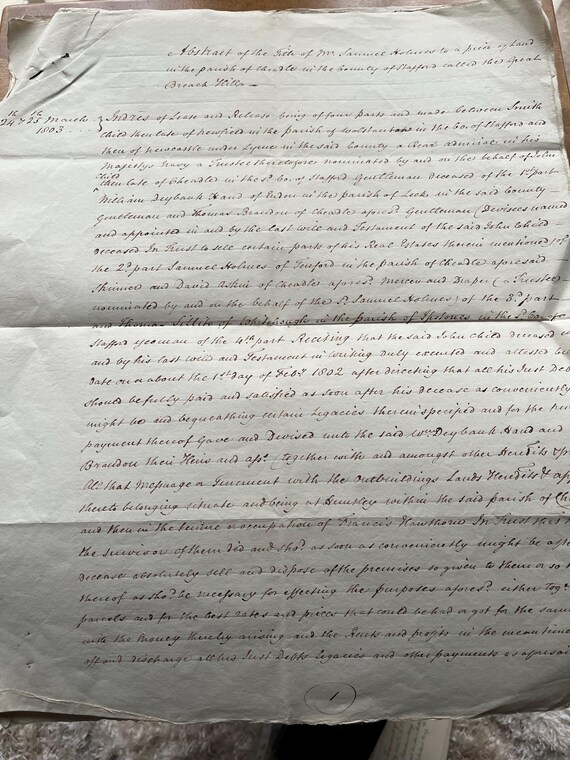 Abstract of the Title of Mr. Samuel Holmes to a piece of Land
in the parish of Cheadle in the County of Stafford called the Great
Breach Hills
24th & 25th March 1803
Indres of Lease and Release being of four parts and made between Smith
Child then late of Newfield in the parish of Wolstanton in the Co. of Stafford and
then of Newcastle under Lyme in the said County a Rear Admiral in his
Majestys Navy a Trustee therein nominated by and on the behalf of John
Child
then late of Cheadle in the sd. Co. of Stafford Gentleman deceased of the 1st. part
William Deybank Hand of Endon in the Parish of Leek in the said County
Gentleman and Thomas Brandon of Cheadle afores. Gentleman (Devisees named
and appointed in and by the last will and Testament of the said John Child
deceased In Trust to sell certain parts of his Real Estates therein mentioned) of
the 2d. part Samuel Holmes of Tenford in the parish of Cheadle aforesaid
Skinner and David of Cheadle afores. Mercer and Draper (a Trustee
nominated by and on the behalf of the sd. Samuel Holmes) of the 3d. part
and Thomas of in the parish of Ipstones in the sd. Co. of
Stafford yeoman of the 4th. part Reciting that the said John Child deceased
and by his last will and Testament in writing duly executed and attested
date on or about the 1st. day of Feby. 1802 after directing that all his Just
should be fully paid and satisfied as soon after his decease as conveniently
might be and bequeathing certain Legacies therein specified and for the
payment thereof Gave and Devised unto the said Wm. Deybank Hand and
Brandon their Heirs and ass. together with and amongst other Heredits
All that Messuage or Tenement with the Outbuildings Lands Heredits &
thereto belonging situate and being at Huntley within the said parish of
and then in the tenure or occupation of Francis Hawthorn In Trust that
the survivor of them did and sho. as soon as conveniently might be
decease absolutely sell and dispose of the premises so given to them or so
thereof as sho. be necessary for effecting the purposes afores. either
parcels and for the best rates and prices that could be had or got for the same
with the Money thereby arising and the Rents and profits in the mean time
off and discharge all his Just Debts Legacies and other payments
1